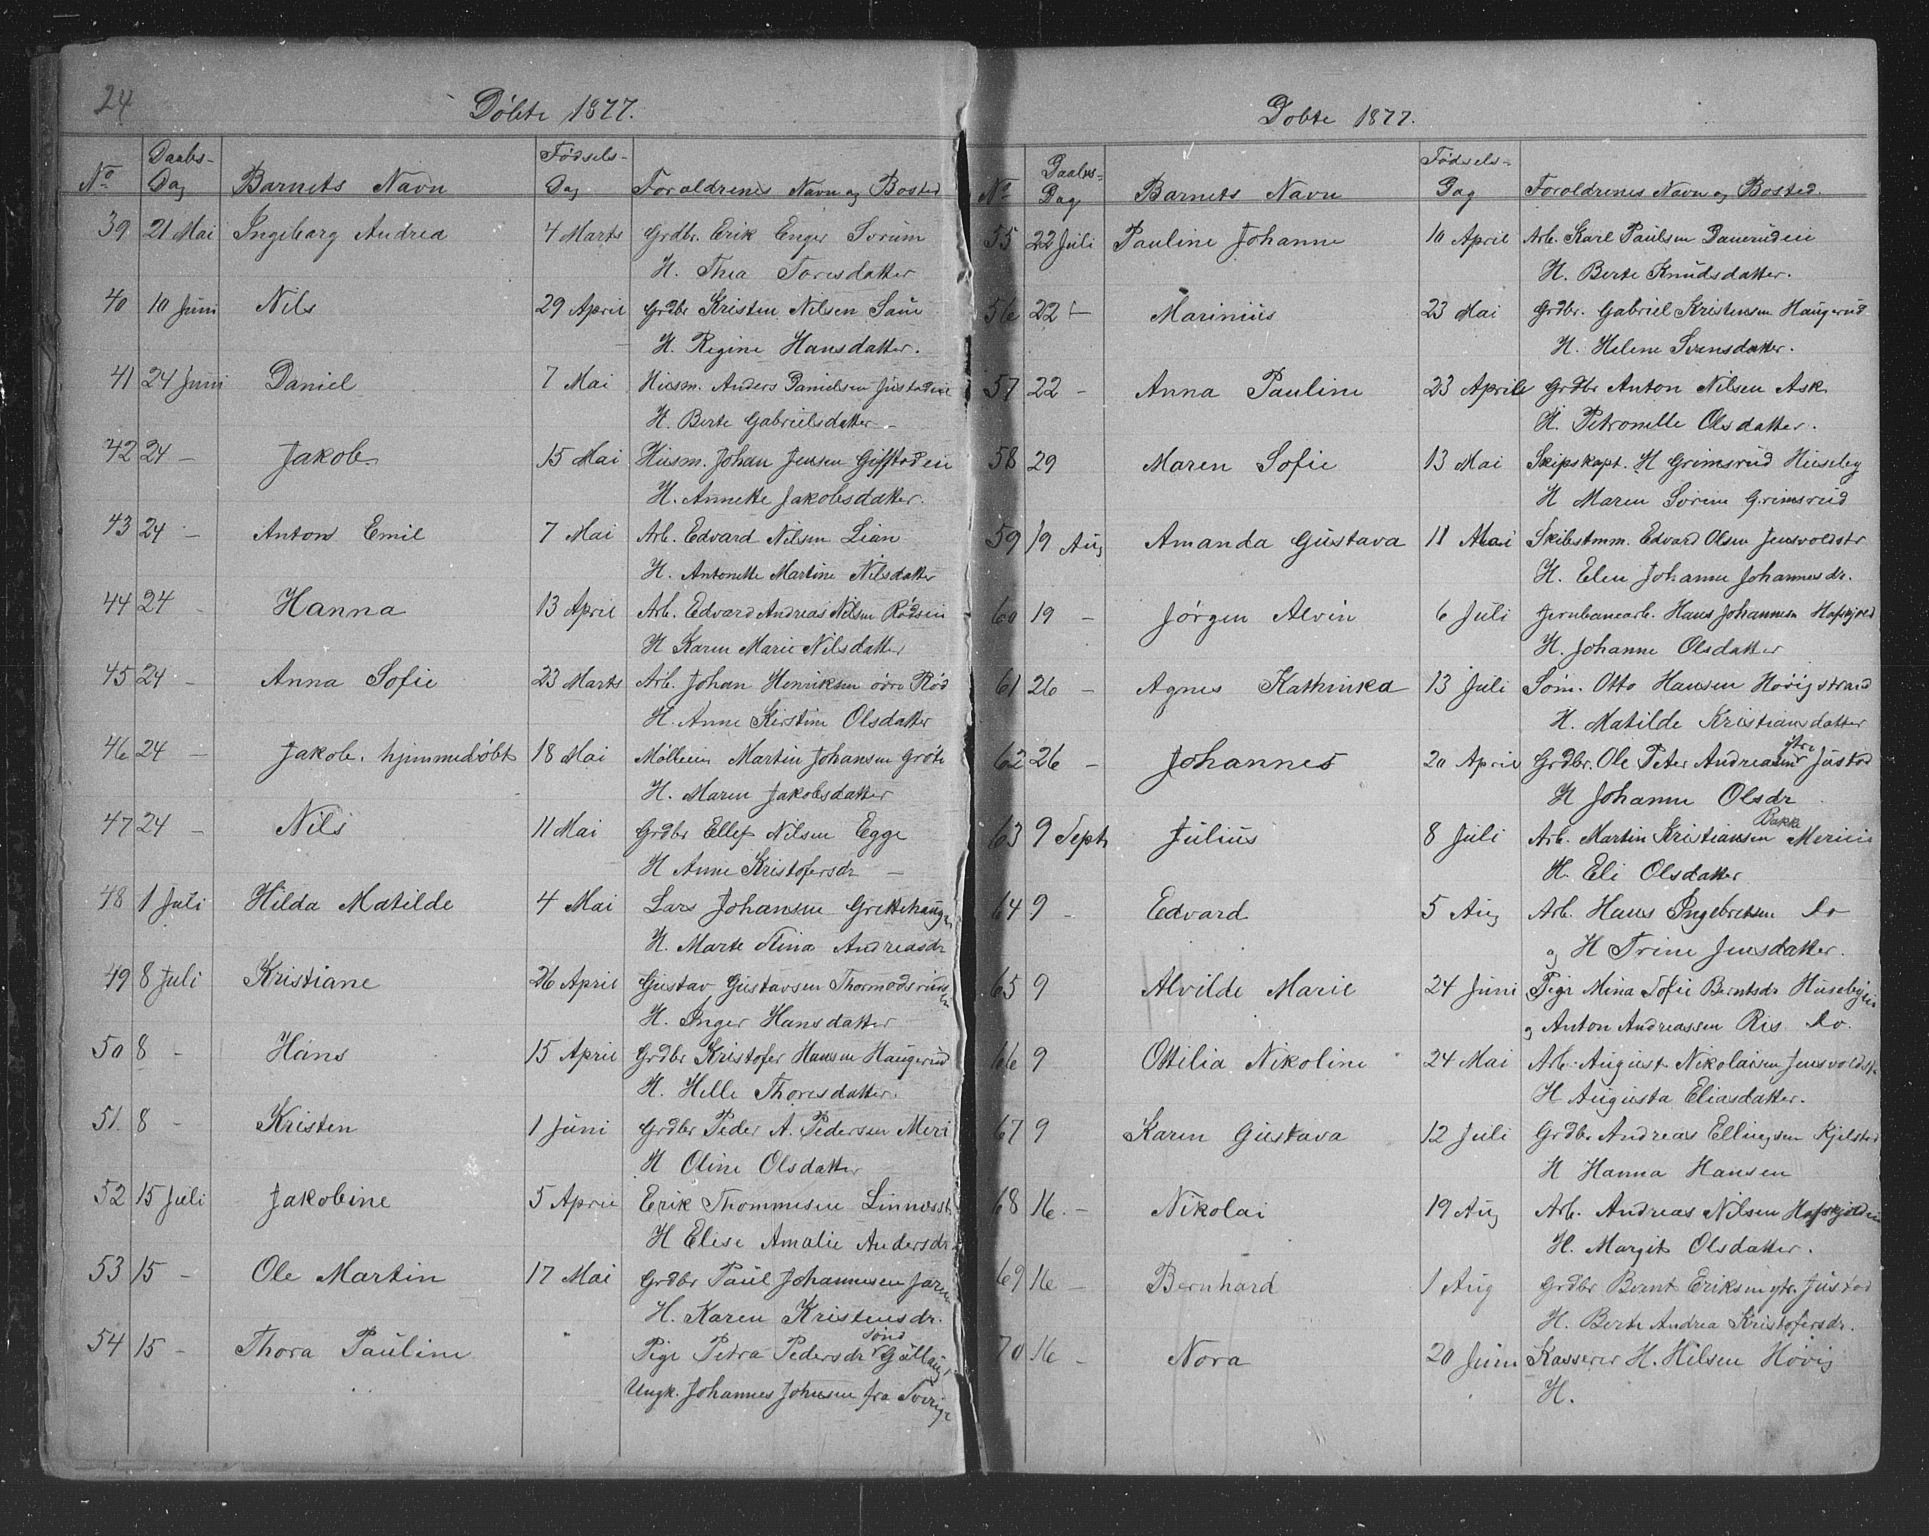 24
Döbte 1877.
No Daabs-Dag Barnets Navn Fødsels-Dag Foraldrenes Navn og Bosted
39 21 Mai Ingeborg Andrea 4 Marts Grdbr. Erik Enger Sorum
H. Thea Toresdatter
40 10 Juni Nils 29 April Grdbr Kristen Nilsen Saue
H. Regine Hansdatter.
41 24 Juni Daniel 7 Mai Husm. Anders Danielsen
H. Berte Gabrielsdatter -
42 24 - Jakob. 15 Mai Husm. Johan Jensen
H. Annette Jakobsdatter.
43 24 - Anton Emil 7 Mai Arb. Edvard Nilsen Lian
H. Antonette Martine Nilsdatter
44 24 - Hanna 13 April Arb. Edvard Andreas Nilsen Rødseie
H Karen Marie Nilsdatter
45 24 - Anna Sofie 23 Marts Arb. Johan Henriksen övre Röd
H. Anne Kirstine Olsdatter
46 24 - Jakob. hjemmedöbt 18 Mai Martin Johansen Gröte
H. Maren Jakobsdatter
47 24 - Nils 11 Mai Grdbr Ellef Nilsen Egge
H Anne Kristofersdr -
48 1 Juli Hilda Matilde 4 Mai Lars Johansen
H. Marte Stina Andreasdr
49 8 Juli Kristiane 26 April Gustav Gustavsen Thormodsrud
H. Inger Hansdatter
50 8 - Hans 15 April Grdbr Kristofer Hansen Haugerud
H. Helle Thoresdatter.
51. 8 - Kristen 1 Juni Grdbr Peder A. Pedersen Meri
H Oline Olsdatter
52 15 Juli Jakobine 5 April Erik Thommesen
H Elise Amalie Andersdr
53 15 - Ole Martin 17 Mai Grdbr Paul Johannesen
H. Karen Kristensdr.
54 15 - Thora Pauline " Pige Petra Pedersdr sönd Gullaug
Ungk. Johannes Johnsen fra Sverige
Dobte 1877.
No Daabs-Dag Barnets Navn Födsels-Dag Foraldrenes Navn og Bosted.
55 22 Juli Pauline Johanne 10 April Arb. Karl Paulsen
H. Berte Knudsdatter.
56 22 - Marinius 23 Mai Grdbr. Gabriel Kristensen Haugerud
H. Helene Svensdatter.
57 22 - Anna Pauline 23 April Grdbr Anton Nilsen Ask
H. Petronelle Olsdatter.
58 29 Maren Sofie 13 Mai Skipskapt. H Grimsrud Huseby
H Maren Sorene Grimsrud
59 19 Aug Amanda Gustava 11 Mai Skibstmm. Edvard Olsen Jensvoldstr
H. Elen Johanne Johannesdr.
60 19 - Jörgen Alvin 6 Juli Jernbanearb. Hans Johannesen
H. Johanne Olsdatter
61 26 - Agnes Kathinka 13 Juli Søm. Otto Hansen Hövigstrand
H. Matilde Kristiansdatter
62 26 - Johannes 20 April Grdbr. Ole Peter Andreasen ytre Justad
H Johanne Olsdr
63 9 Sept Julius 8 Juli Arb. Martin Kristiansen Bakke
H. Eli Olsdatter
64 9 - Edvard 5 Aug Arb. Hans Ingebretsen Do
og H Trine Jensdatter.
65 9 Alvilde Marie 24 Juni Pige Mina Sofie Berntsdr
og Anton Andreassen Ris Do.
66 9 Ottilia Nikoline 24 Mai Arb. August Nikolaisen Jensvoldst.
H Augusta Eliasdatter.
67 9 Karen Gustava 12 Juli Grdbr Andreas Ellingsen Kjelstad
H Hanna Hansen
68 16. - Nikolai 19 Aug Arb. Andreas Nilsen
H. Margit Olsdatter.
69 16 - Bernhard 1 Aug Grdbr Bernt Eriksen ytr. Justad
H. Berte Andrea Kristofersdr.
70 16 - Nora 20 Juni Kasserer H. Nilsen Hövig
H.